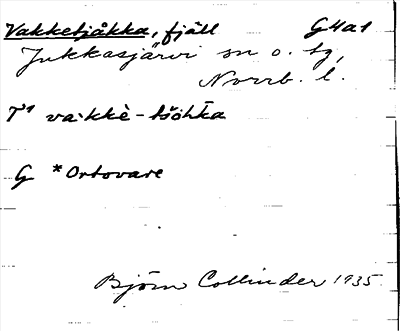 Vakketjåkka, fjäll G4a1
Jukkasjärvi sn o. tg,
Norrb. l.
T¹ va·kkè-tšåhka
G *Ortovare
Björn Collinder 1935